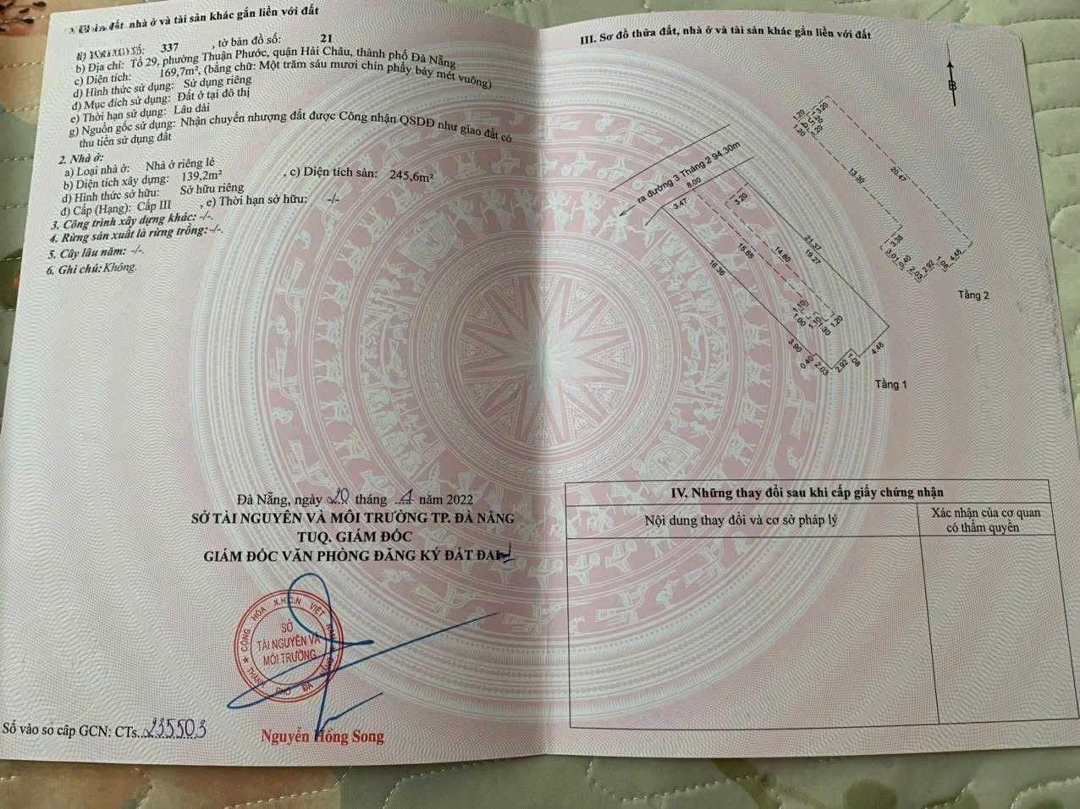 đất, nhà ở và tài sản khác gắn liền với đất
337 , tờ bản đồ số: 21
b) Địa chỉ: Tổ 29, phường Thuận Phước, quận Hải Châu, thành phố Đà Nẵng
c) Diện tích: 169,7m², (bằng chữ: Một trăm sáu mươi chín phẩy bảy mét vuông)
d) Hình thức sử dụng: Sử dụng riêng
đ) Mục đích sử dụng: Đất ở tại đô thị
e) Thời hạn sử dụng: Lâu dài
g) Nguồn gốc sử dụng: Nhận chuyển nhượng đất được Công nhận QSDĐ như giao đất có
thu tiền sử dụng đất
2. Nhà ở:
a) Loại nhà ở: Nhà ở riêng lẻ
b) Diện tích xây dựng: 139,2m² , c) Diện tích sàn: 245,6m²
d) Hình thức sở hữu: Sở hữu riêng
đ) Cấp (Hạng): Cấp III , e) Thời hạn sở hữu: -/-
3. Công trình xây dựng khác: -/-.
4. Rừng sản xuất là rừng trồng: -/-.
5. Cây lâu năm: -/-.
6. Ghi chú: Không.
Đà Nẵng, ngày 20 tháng 1 năm 2022
SỞ TÀI NGUYÊN VÀ MÔI TRƯỜNG TP. ĐÀ NẴNG
TUQ. GIÁM ĐỐC
GIÁM ĐỐC VĂN PHÒNG ĐĂNG KÝ ĐẤT ĐAI
CỘNG HÒA X.H.C.N VIỆT NAM
SỞ
TÀI NGUYÊN VÀ
MÔI TRƯỜNG
THÀNH PHỐ ĐÀ
Nguyễn Hồng Song
Số vào sổ cấp GCN: CTs.235503
III. Sơ đồ thửa đất, nhà ở và tài sản khác gắn liền với đất
B
1.20
3.20
1.20
1.20
13.30
20.47
3.38
3.01
2.03
2.92
1.08
4.48
Tầng 2
ra đường 3 Tháng 2 94.30m
8.00
3.47
3.20
21.37
19.27
14.80
15.65
16.36
1.10
1.00
1.10
1.20
3.90
0.40
2.03
2.92
1.08
4.48
Tầng 1
IV. Những thay đổi sau khi cấp giấy chứng nhận
Nội dung thay đổi và cơ sở pháp lý
Xác nhận của cơ quan
có thẩm quyền